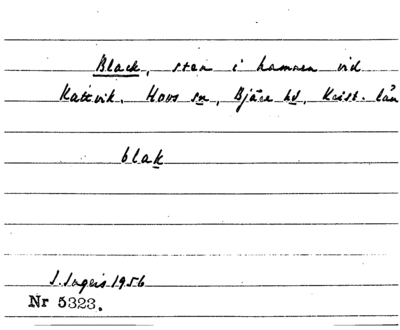 Black, sten i hamnen vid
Kattvik. Hovs sn, Bjäre hd, Krist. län
blak
S. Ingers 1956
Nr 5323.